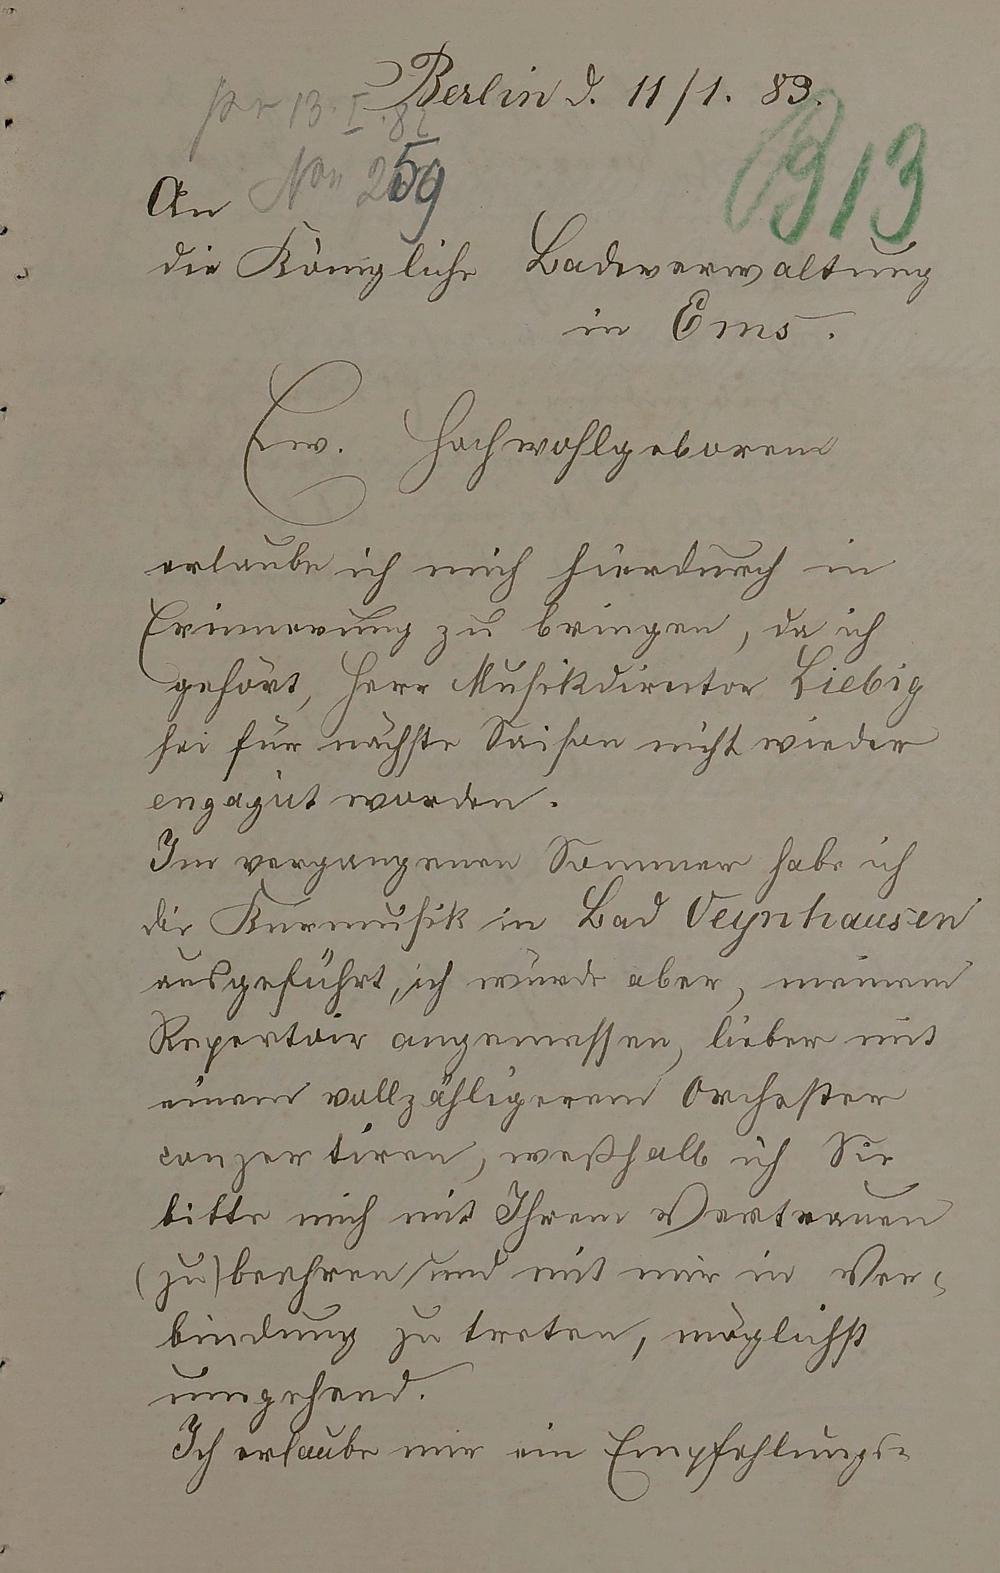 Berlin d. 11/1. 83.
pr 13. I. 8
Non 259
B 13
An
die Königliche Badeverwaltung
in Ems.
Ew. Hochwohlgeboren
erlaube ich mich hierdurch in
Erinnerung zu bringen, da ich
gehört, Herr Musikdirector Liebig
sei für nächste Saison nicht wieder
engagirt worden.
Im vergangenen Sommer habe ich
die Kurmusik in Bad Oeynhausen
ausgeführt, ich würde aber, meinem
Repertoir angemessen, lieber mit
einem vollzähligerem Orchester
conzertiren, weßhalb ich Sie
bitte mich mit Ihrem Vertrauen
(zu) beehren und mit mir in Ver-
bindung zu treten, möglichst
umgehend.
Ich erlaube mir ein Empfehlungs-